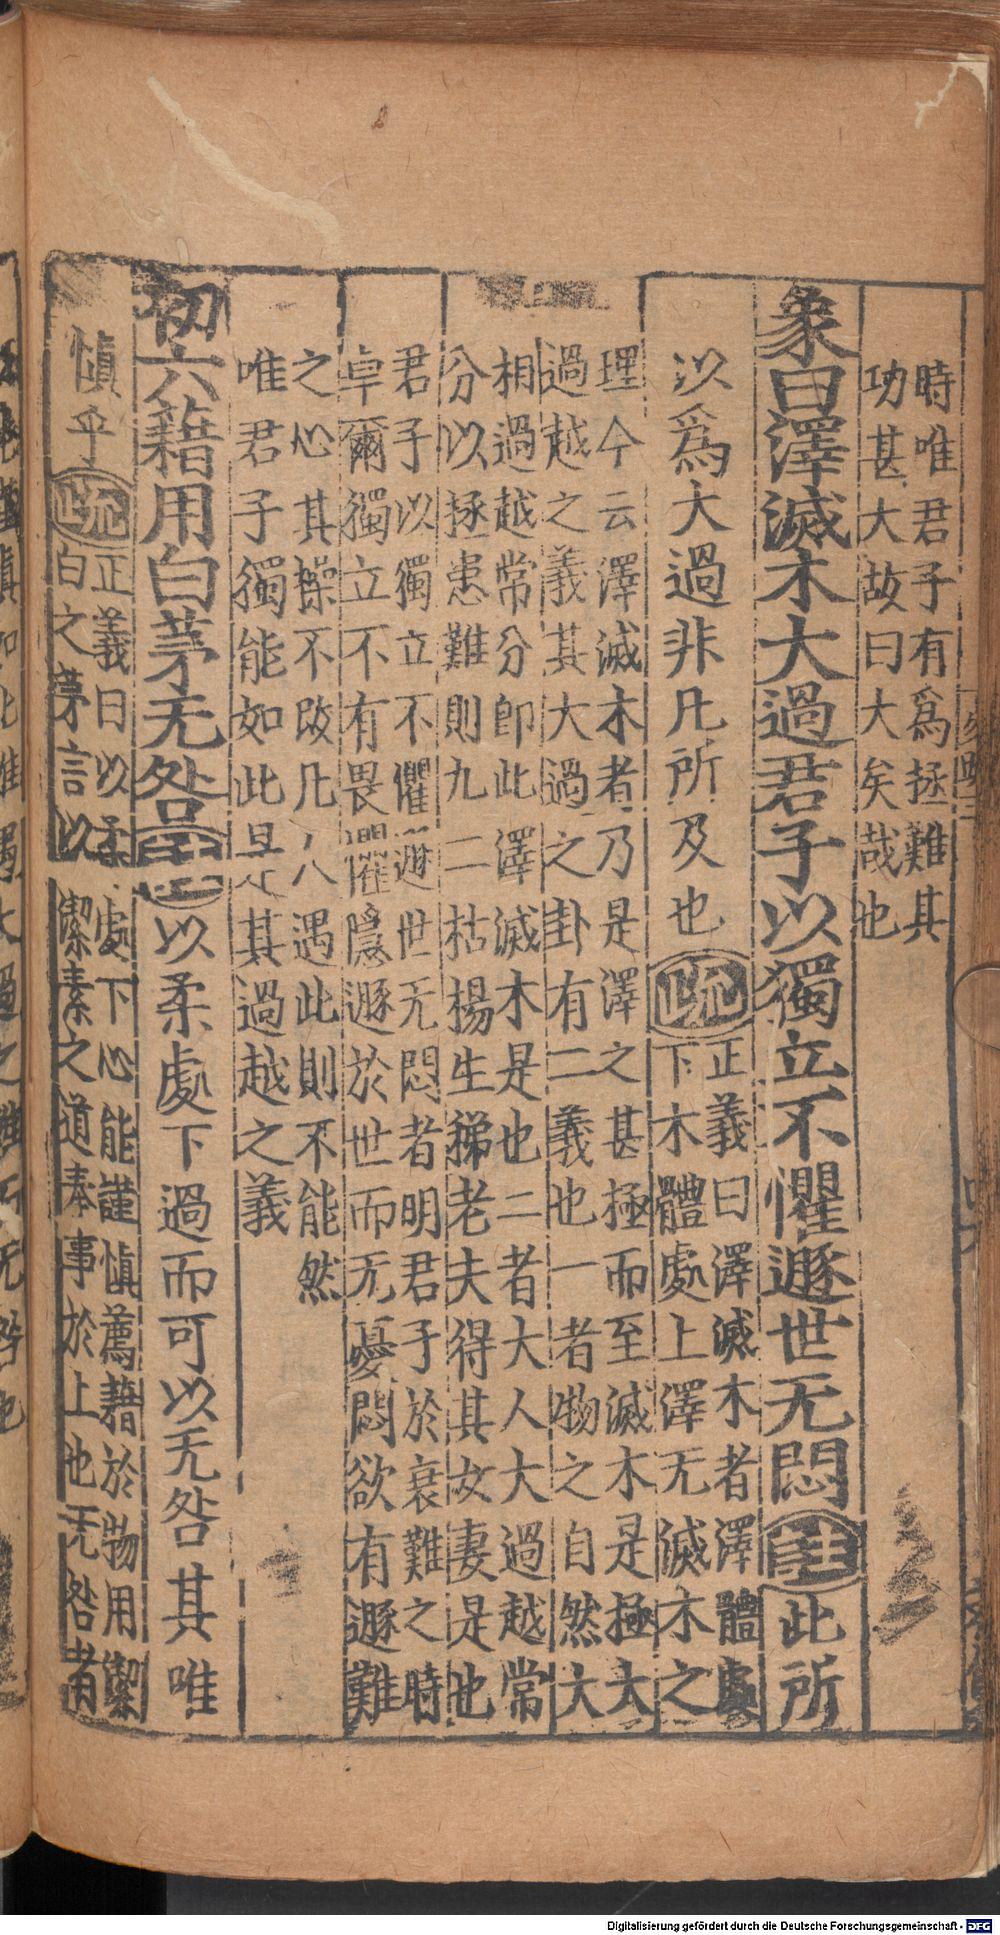 時唯君子有爲拯難其
功甚大故曰大矣哉也
象曰澤滅木大過君子以獨立不懼遯世无悶註此所
以爲大過非凡所及也疏
正義曰澤滅木者澤體處
下木體處上澤无滅木之
理今云澤滅木者乃是澤之甚極而至滅木是極大
過越之義其大過之卦有二義也一者物之自然大
相過越常分即此澤滅木是也二者大人大過越常
分以拯患難則九二枯楊生稊老夫得其女妻是也
君子以獨立不懼遯世无悶者明君子於衰難之時
卓爾獨立不有畏懼隱遯於世而无憂悶欲有遯難
之心其操不改凡人遇此則不能然
唯君子獨能如此是其過越之義
初六藉用白茅无咎註以柔處下過而可以无咎其唯
慎乎疏
正義曰以柔處下心能謹慎薦藉於物用潔
白之茅言以潔素之道奉事於上也无咎者
Digitalisierung gefördert durch die Deutsche Forschungsgemeinschaft - DFG